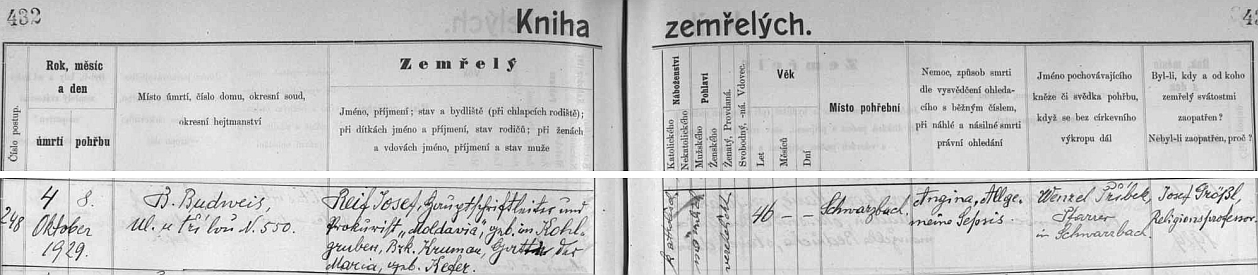 432
Kniha zemřelých.
Číslo postup.
Rok, měsíc
a den
úmrtí pohřbu
Místo úmrtí, číslo domu, okresní soud,
okresní hejtmanství
Zemřelý
Jméno, příjmení; stav a bydliště (při chlapcích rodiště);
při dítkách jméno a příjmení, stav rodičů; při ženách
a vdovách jméno, příjmení a stav muže
Náboženství
Katolického
Nekatolického
Pohlaví
Mužského
Ženského
Ženatý, Provdaná.
Svobodný, -ná. Vdovec.
Věk
Let
Měsíců
Dní
Místo pohřební
Nemoc, způsob smrti
dle vysvědčení ohleda-
cího s běžným číslem,
při náhlé a násilné smrti
právní ohledání
Jméno pochovávajícího
kněze či svědka pohřbu,
když se bez církevního
výkropu dál
Byl-li, kdy a od koho
zemřelý svátostmi
zaopatřen?
Nebyl-li zaopatřen, proč?
248
4 8.
Oktober
1929.
B. Budweis,
Ul. u tří lvů N. 550.
Reif Josef, Hauptschriftleiter und
Prokurist „Moldavia“, geb. in Kohl-
gruben, Bzk. Krumau, Gatte der
Maria, geb. Kefer.
kathol.
verehelicht
46 — —
Schwarzbach,
Angina, Allge-
meine Sepsis.
Wenzel Přibek,
Pfarrer
in Schwarzbach
Josef Größl,
Religionsprofessor.